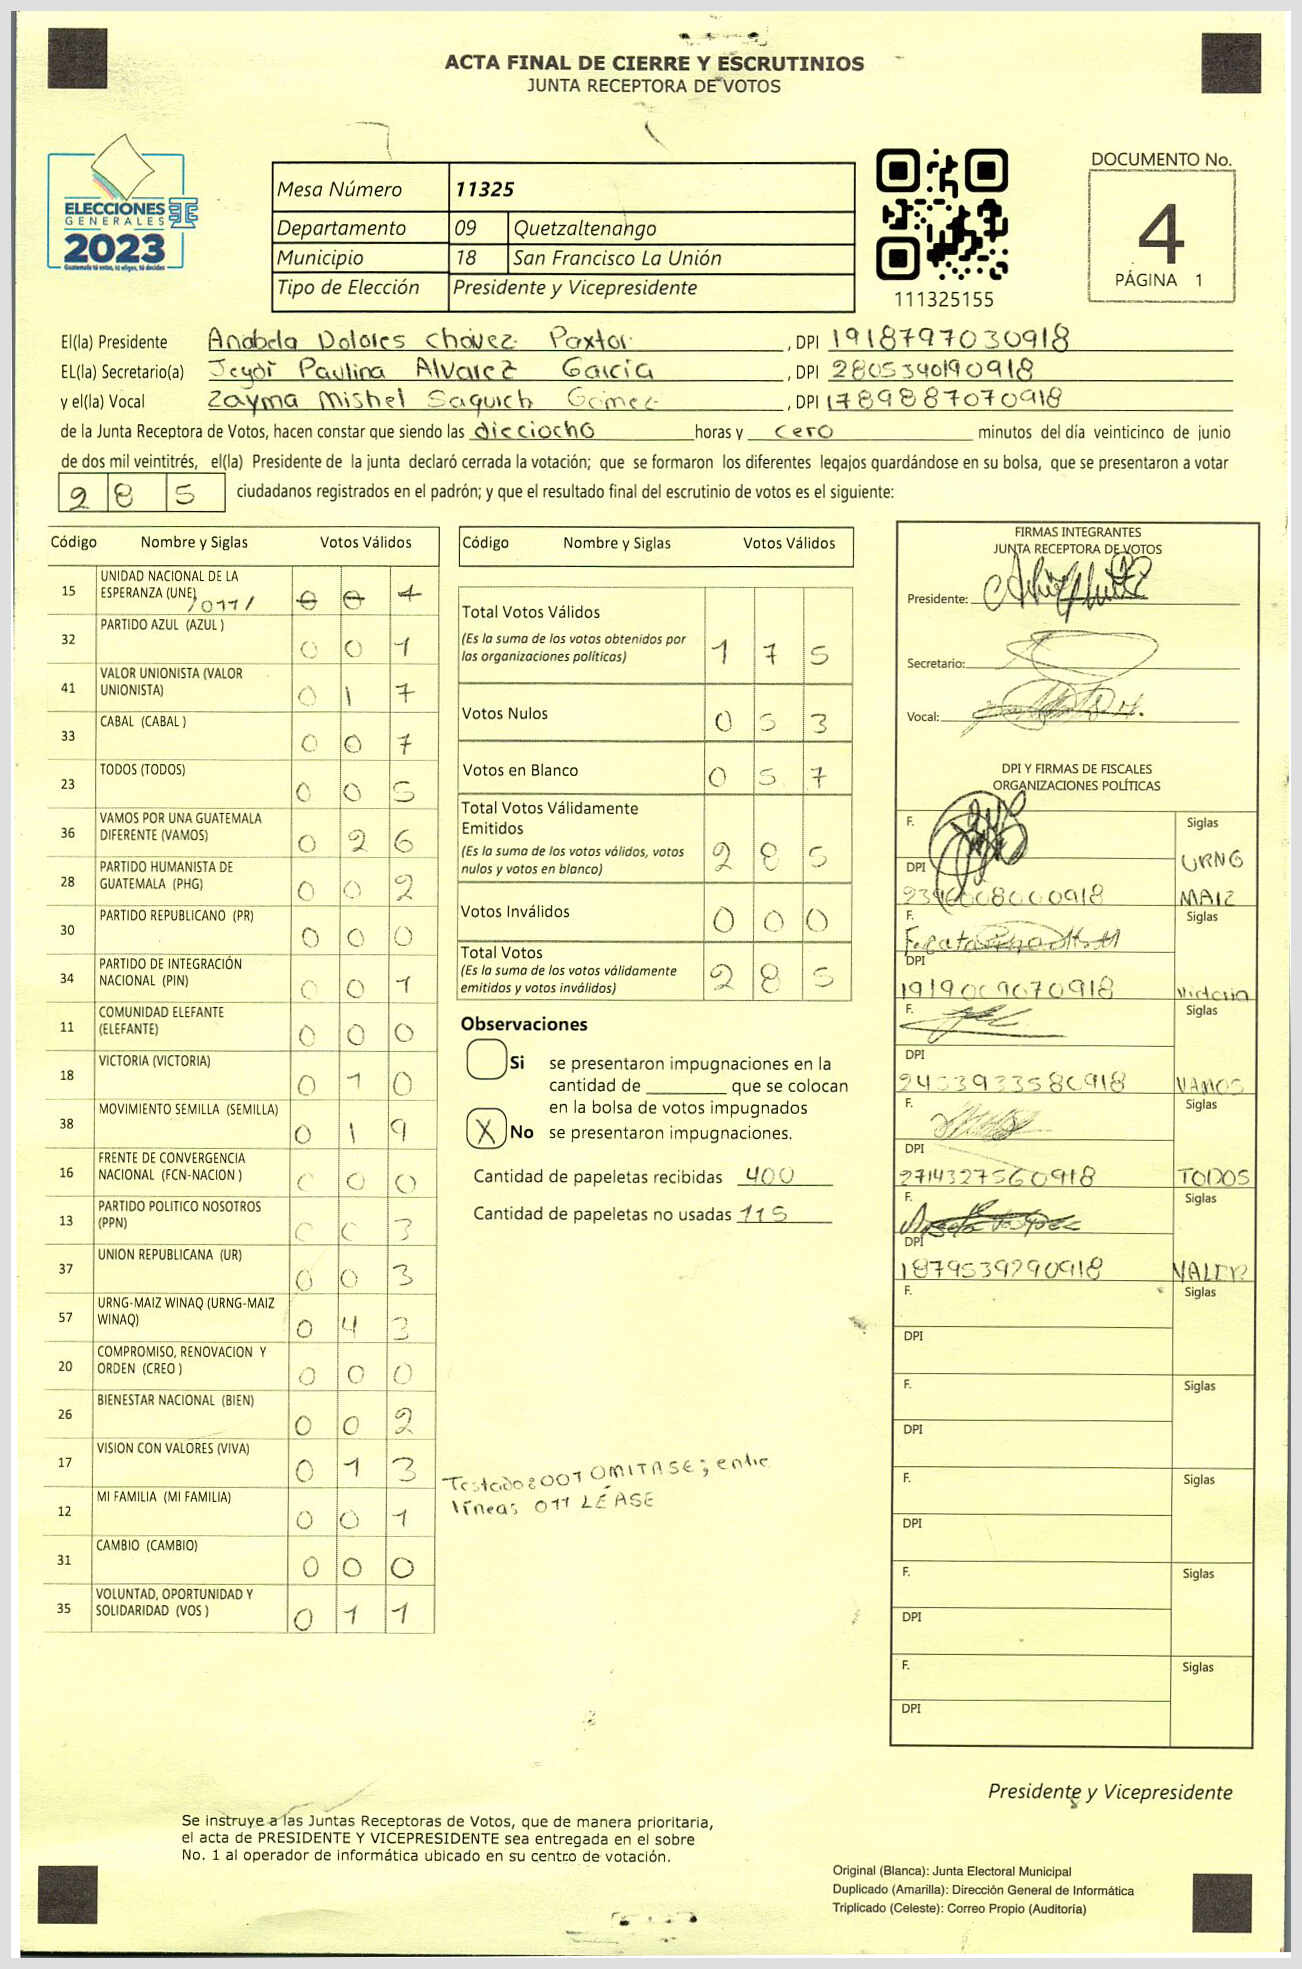 ACTA FINAL DE CIERRE Y ESCRUTINIOS
JUNTA RECEPTORA DE VOTOS
ELECCIONES
GENERALES
2023
Guatemala tú votas, tú eliges, tú decides
Mesa Número 11325
Departamento 09 Quetzaltenango
Municipio 18 San Francisco La Unión
Tipo de Elección Presidente y Vicepresidente
111325155
DOCUMENTO No.
4
PÁGINA 1
El(la) Presidente Anabela Dolores Chávez Paxtor, DPI 1918797030918
EL(la) Secretario(a) Jeydi Paulina Alvarez García, DPI 2805340190918
y el(la) Vocal Zayma Mishel Saquich Gómez, DPI 1789887070918
de la Junta Receptora de Votos, hacen constar que siendo las dieciocho horas y cero minutos del día veinticinco de junio
de dos mil veintitrés, el(la) Presidente de la junta declaró cerrada la votación; que se formaron los diferentes legajos guardándose en su bolsa, que se presentaron a votar
2 8 5 ciudadanos registrados en el padrón; y que el resultado final del escrutinio de votos es el siguiente:
Código Nombre y Siglas Votos Válidos
15 UNIDAD NACIONAL DE LA
ESPERANZA (UNE) /011/ 0 0 1
32 PARTIDO AZUL (AZUL ) 0 0 1
41 VALOR UNIONISTA (VALOR
UNIONISTA) 0 1 7
33 CABAL (CABAL ) 0 0 7
23 TODOS (TODOS) 0 0 5
36 VAMOS POR UNA GUATEMALA
DIFERENTE (VAMOS) 0 2 6
28 PARTIDO HUMANISTA DE
GUATEMALA (PHG) 0 0 2
30 PARTIDO REPUBLICANO (PR) 0 0 0
34 PARTIDO DE INTEGRACIÓN
NACIONAL (PIN) 0 0 1
11 COMUNIDAD ELEFANTE
(ELEFANTE) 0 0 0
18 VICTORIA (VICTORIA) 0 1 0
38 MOVIMIENTO SEMILLA (SEMILLA) 0 1 9
16 FRENTE DE CONVERGENCIA
NACIONAL (FCN-NACION ) 0 0 0
13 PARTIDO POLITICO NOSOTROS
(PPN) 0 0 3
37 UNION REPUBLICANA (UR) 0 0 3
57 URNG-MAIZ WINAQ (URNG-MAIZ
WINAQ) 0 4 3
20 COMPROMISO, RENOVACION Y
ORDEN (CREO ) 0 0 0
26 BIENESTAR NACIONAL (BIEN) 0 0 2
17 VISION CON VALORES (VIVA) 0 1 3
12 MI FAMILIA (MI FAMILIA) 0 0 1
31 CAMBIO (CAMBIO) 0 0 0
35 VOLUNTAD, OPORTUNIDAD Y
SOLIDARIDAD (VOS ) 0 1 1
Código Nombre y Siglas Votos Válidos
Total Votos Válidos
(Es la suma de los votos obtenidos por
las organizaciones políticas) 1 7 5
Votos Nulos 0 5 3
Votos en Blanco 0 5 7
Total Votos Válidamente
Emitidos
(Es la suma de los votos válidos, votos
nulos y votos en blanco) 2 8 5
Votos Inválidos 0 0 0
Total Votos
(Es la suma de los votos válidamente
emitidos y votos inválidos) 2 8 5
Observaciones
Si se presentaron impugnaciones en la
cantidad de ________ que se colocan
en la bolsa de votos impugnados
X No se presentaron impugnaciones.
Cantidad de papeletas recibidas 400
Cantidad de papeletas no usadas 115
Testado: 001 OMITASE; entre
líneas 011 LÉASE
FIRMAS INTEGRANTES
JUNTA RECEPTORA DE VOTOS
Presidente:
Secretario:
Vocal:
DPI Y FIRMAS DE FISCALES
ORGANIZACIONES POLÍTICAS
F. Siglas
URNG
DPI
2396008000918 MAIZ
F. Siglas
DPI
1919009070918 Victoria
F. Siglas
DPI
2453933580918 VAMOS
F. Siglas
DPI
2714327560918 TODOS
F. Siglas
DPI
1879539290918
F. Siglas
DPI
F. Siglas
DPI
F. Siglas
DPI
F. Siglas
DPI
F. Siglas
DPI
Presidente y Vicepresidente
Se instruye a las Juntas Receptoras de Votos, que de manera prioritaria,
el acta de PRESIDENTE Y VICEPRESIDENTE sea entregada en el sobre
No. 1 al operador de informática ubicado en su centro de votación.
Original (Blanca): Junta Electoral Municipal
Duplicado (Amarilla): Dirección General de Informática
Triplicado (Celeste): Correo Propio (Auditoría)